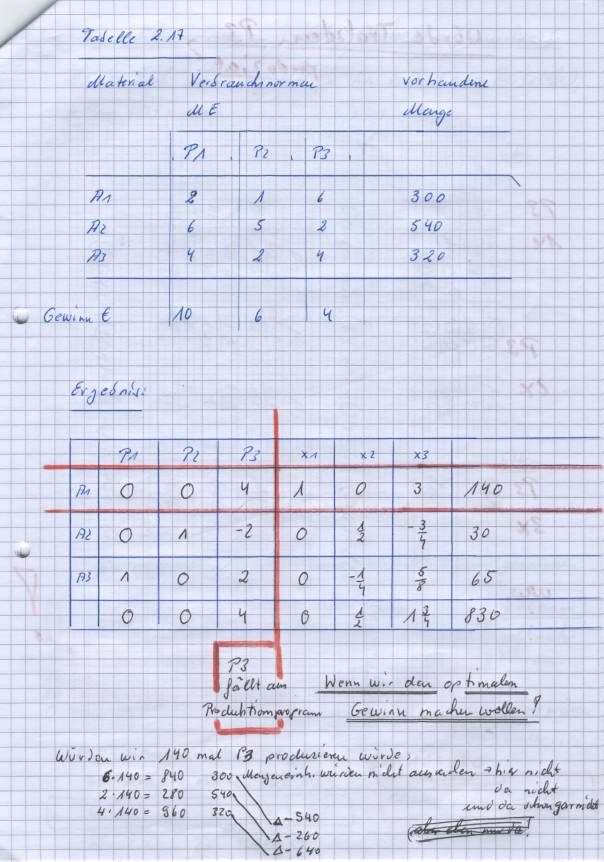 Tabelle 2.17
Material Verbrauchsnormen vorhandene
ME Menge
P1 P2 P3
A1 2 1 6 300
A2 6 5 2 540
A3 4 2 4 320
Gewinn € 10 6 4
Ergebnis:
P1 P2 P3 x1 x2 x3
A1 0 0 4 1 0 3 140
A2 0 1 -2 0 1/2 -3/4 30
A3 1 0 2 0 -1/4 5/8 65
0 0 4 0 1/2 1 3/4 830
P3
fällt aus
Produktionsprogram
Wenn wir den optimalen
Gewinn machen wollen!
Würden wir 140 mal P3 produzieren würde,
6·140 = 840 300 Mengeneinh. würden nicht ausreichen → hier nicht
2·140 = 280 540 da nicht
4·140 = 960 320 und da schon gar nicht
Δ-540
Δ-260
Δ-640